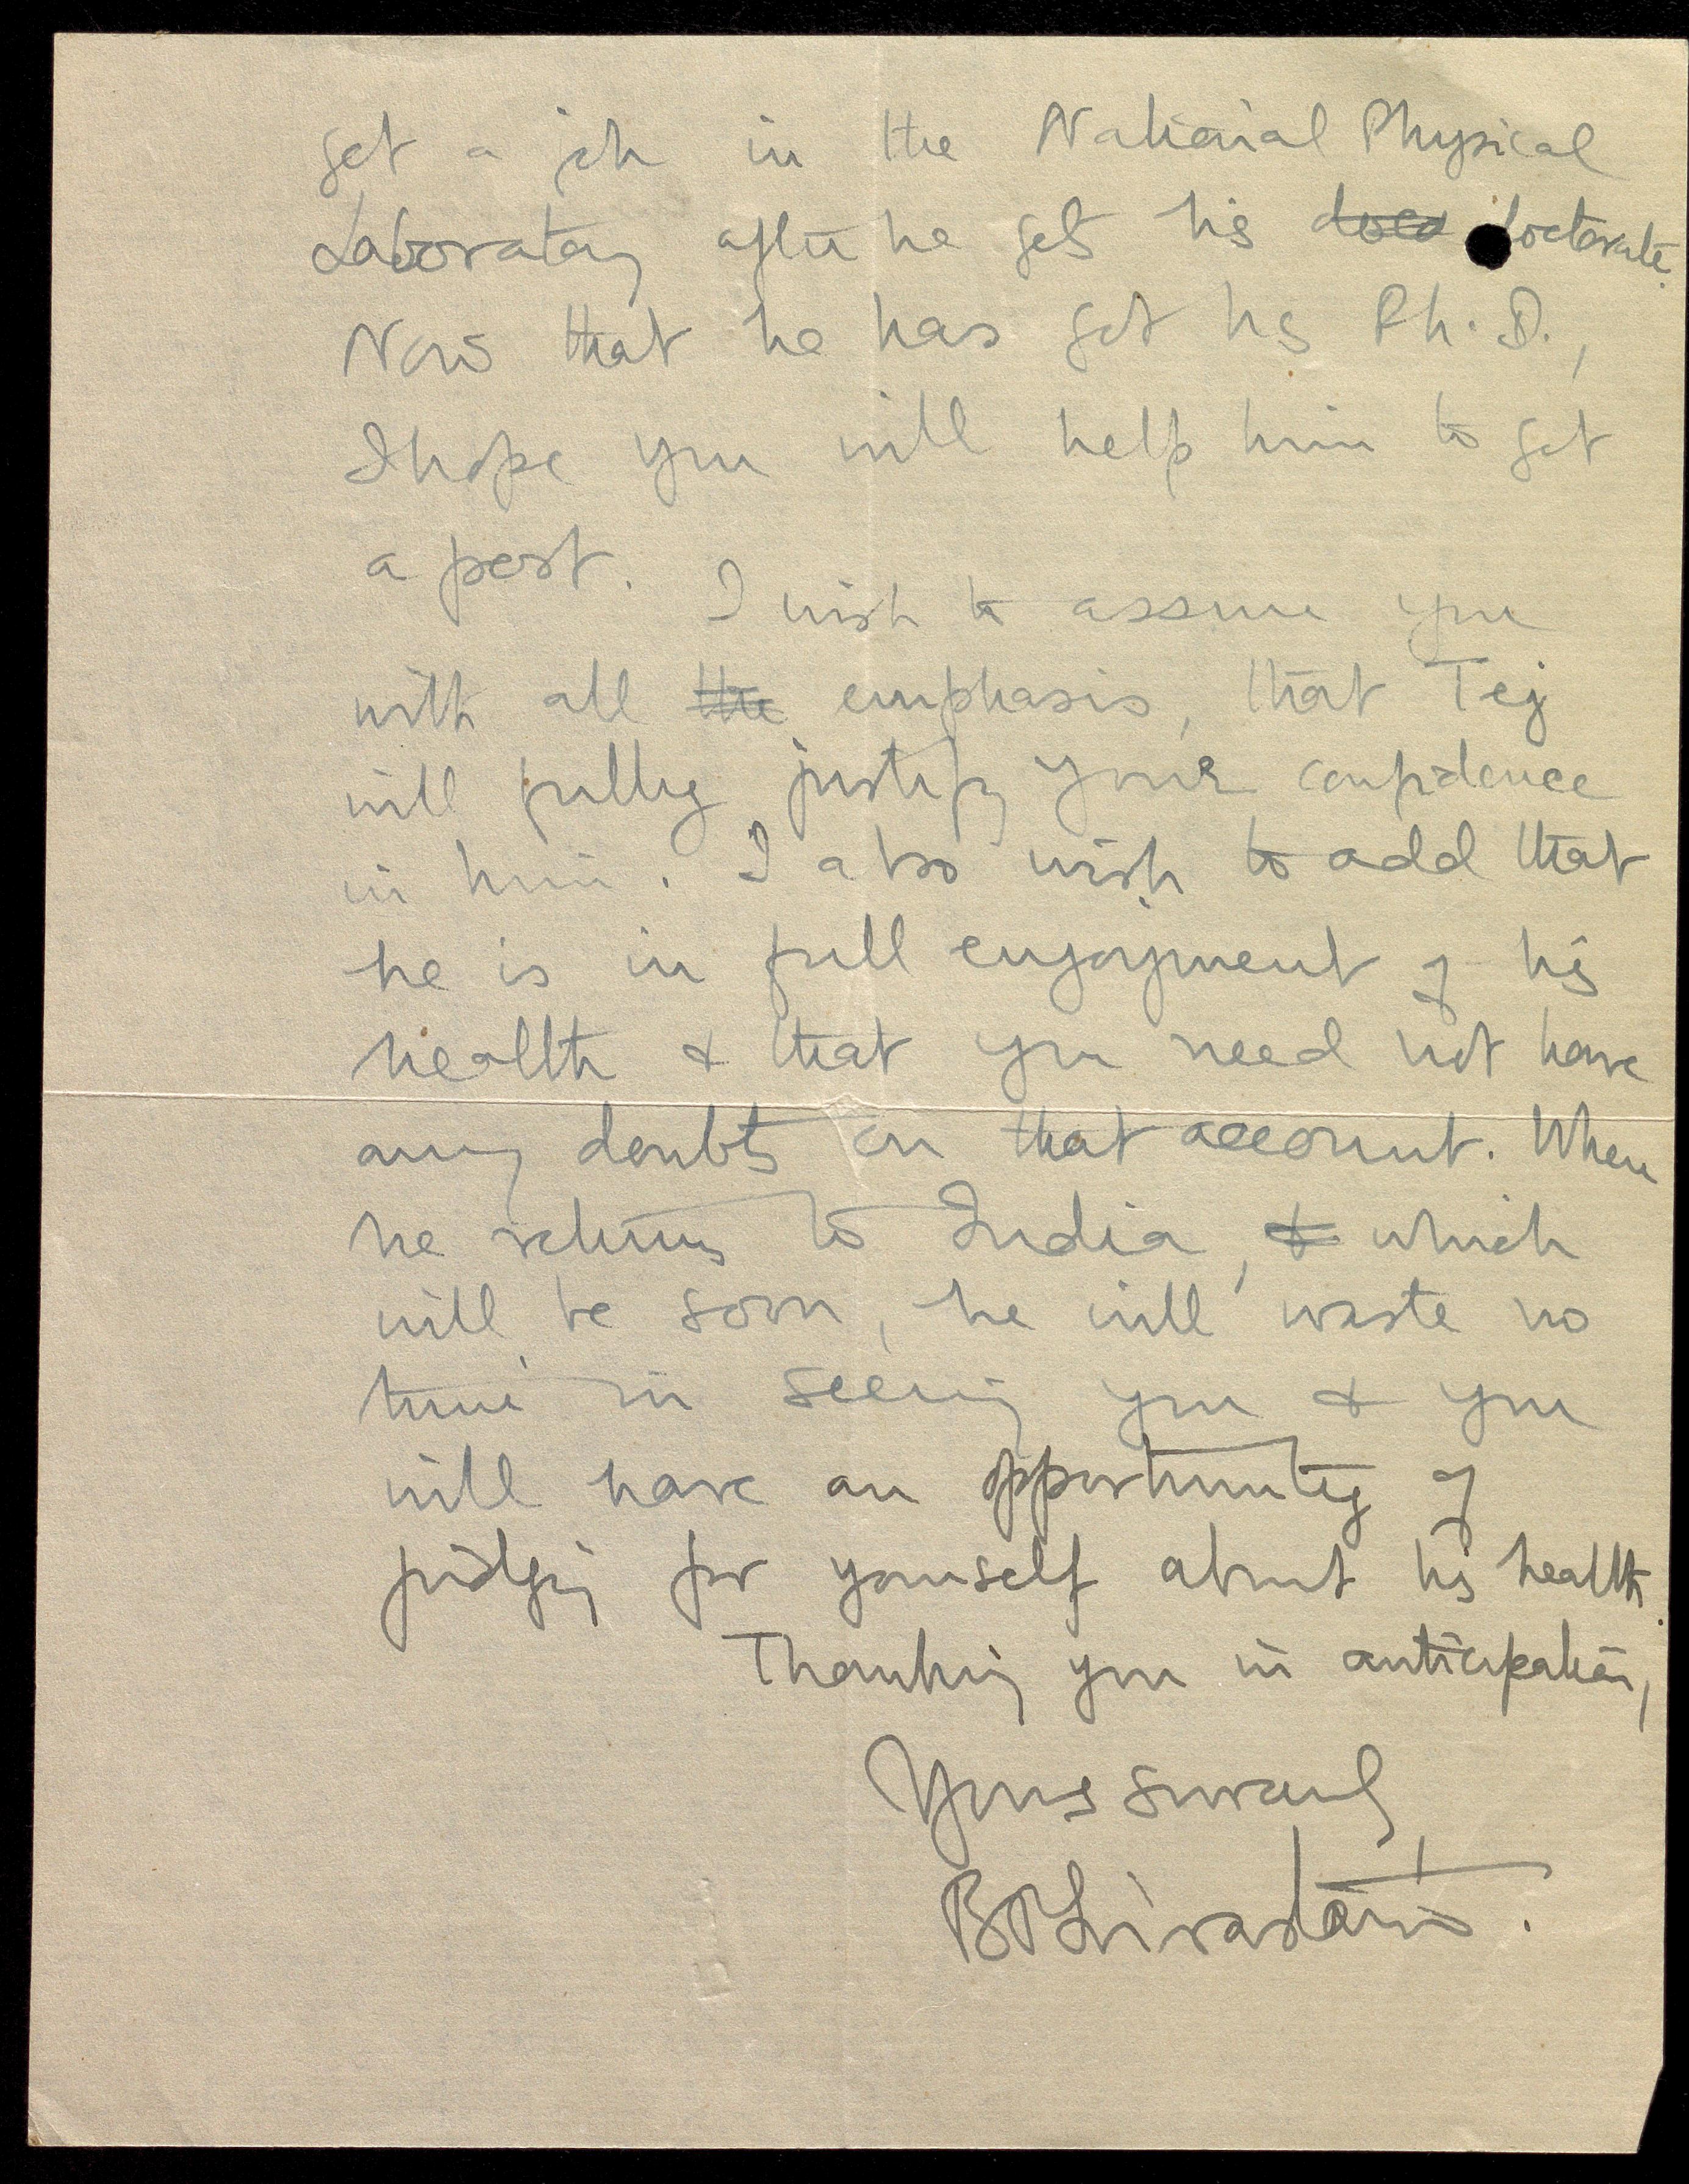 get a job in the National Physical
Laboratory after he gets his doctorate.
Now that he has got his Ph.D.,
I hope you will help him to get
a post.
I wish to assure you
with all the emphasis, that Tej
will fully justify your confidence
in him. I also wish to add that
he is in full enjoyment of his
health & that you need not have
any doubts on that account. When
he returns to India, & which
will be soon, he will waste no
time in seeing you & you
will have an opportunity of
judging for yourself about his health.
Thanking you in anticipation,
Yours sincerely,